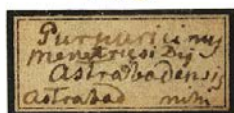 Purpuricinus
menetriesi Dej
Astrabadensis
Astrabad mihi